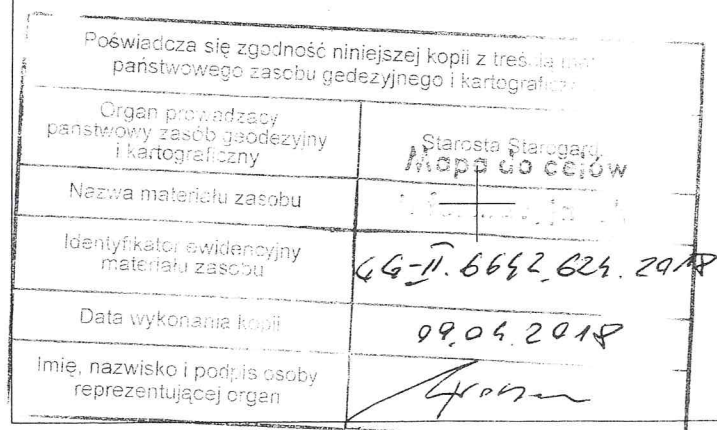 Poświadcza się zgodność niniejszej kopii z treścią
państwowego zasobu gedezyjnego i kartograficz
Organ prowadzący
państwowy zasób geodezyjny
i kartograficzny
Starosta Starogard
Nazwa materiału zasobu
Mapa do celów
Identyfikator ewidencyjny
materiału zasobu
GG-II.6642.624.2018
Data wykonania kopii
09.04.2018
imię, nazwisko i podpis osoby
reprezentującej organ